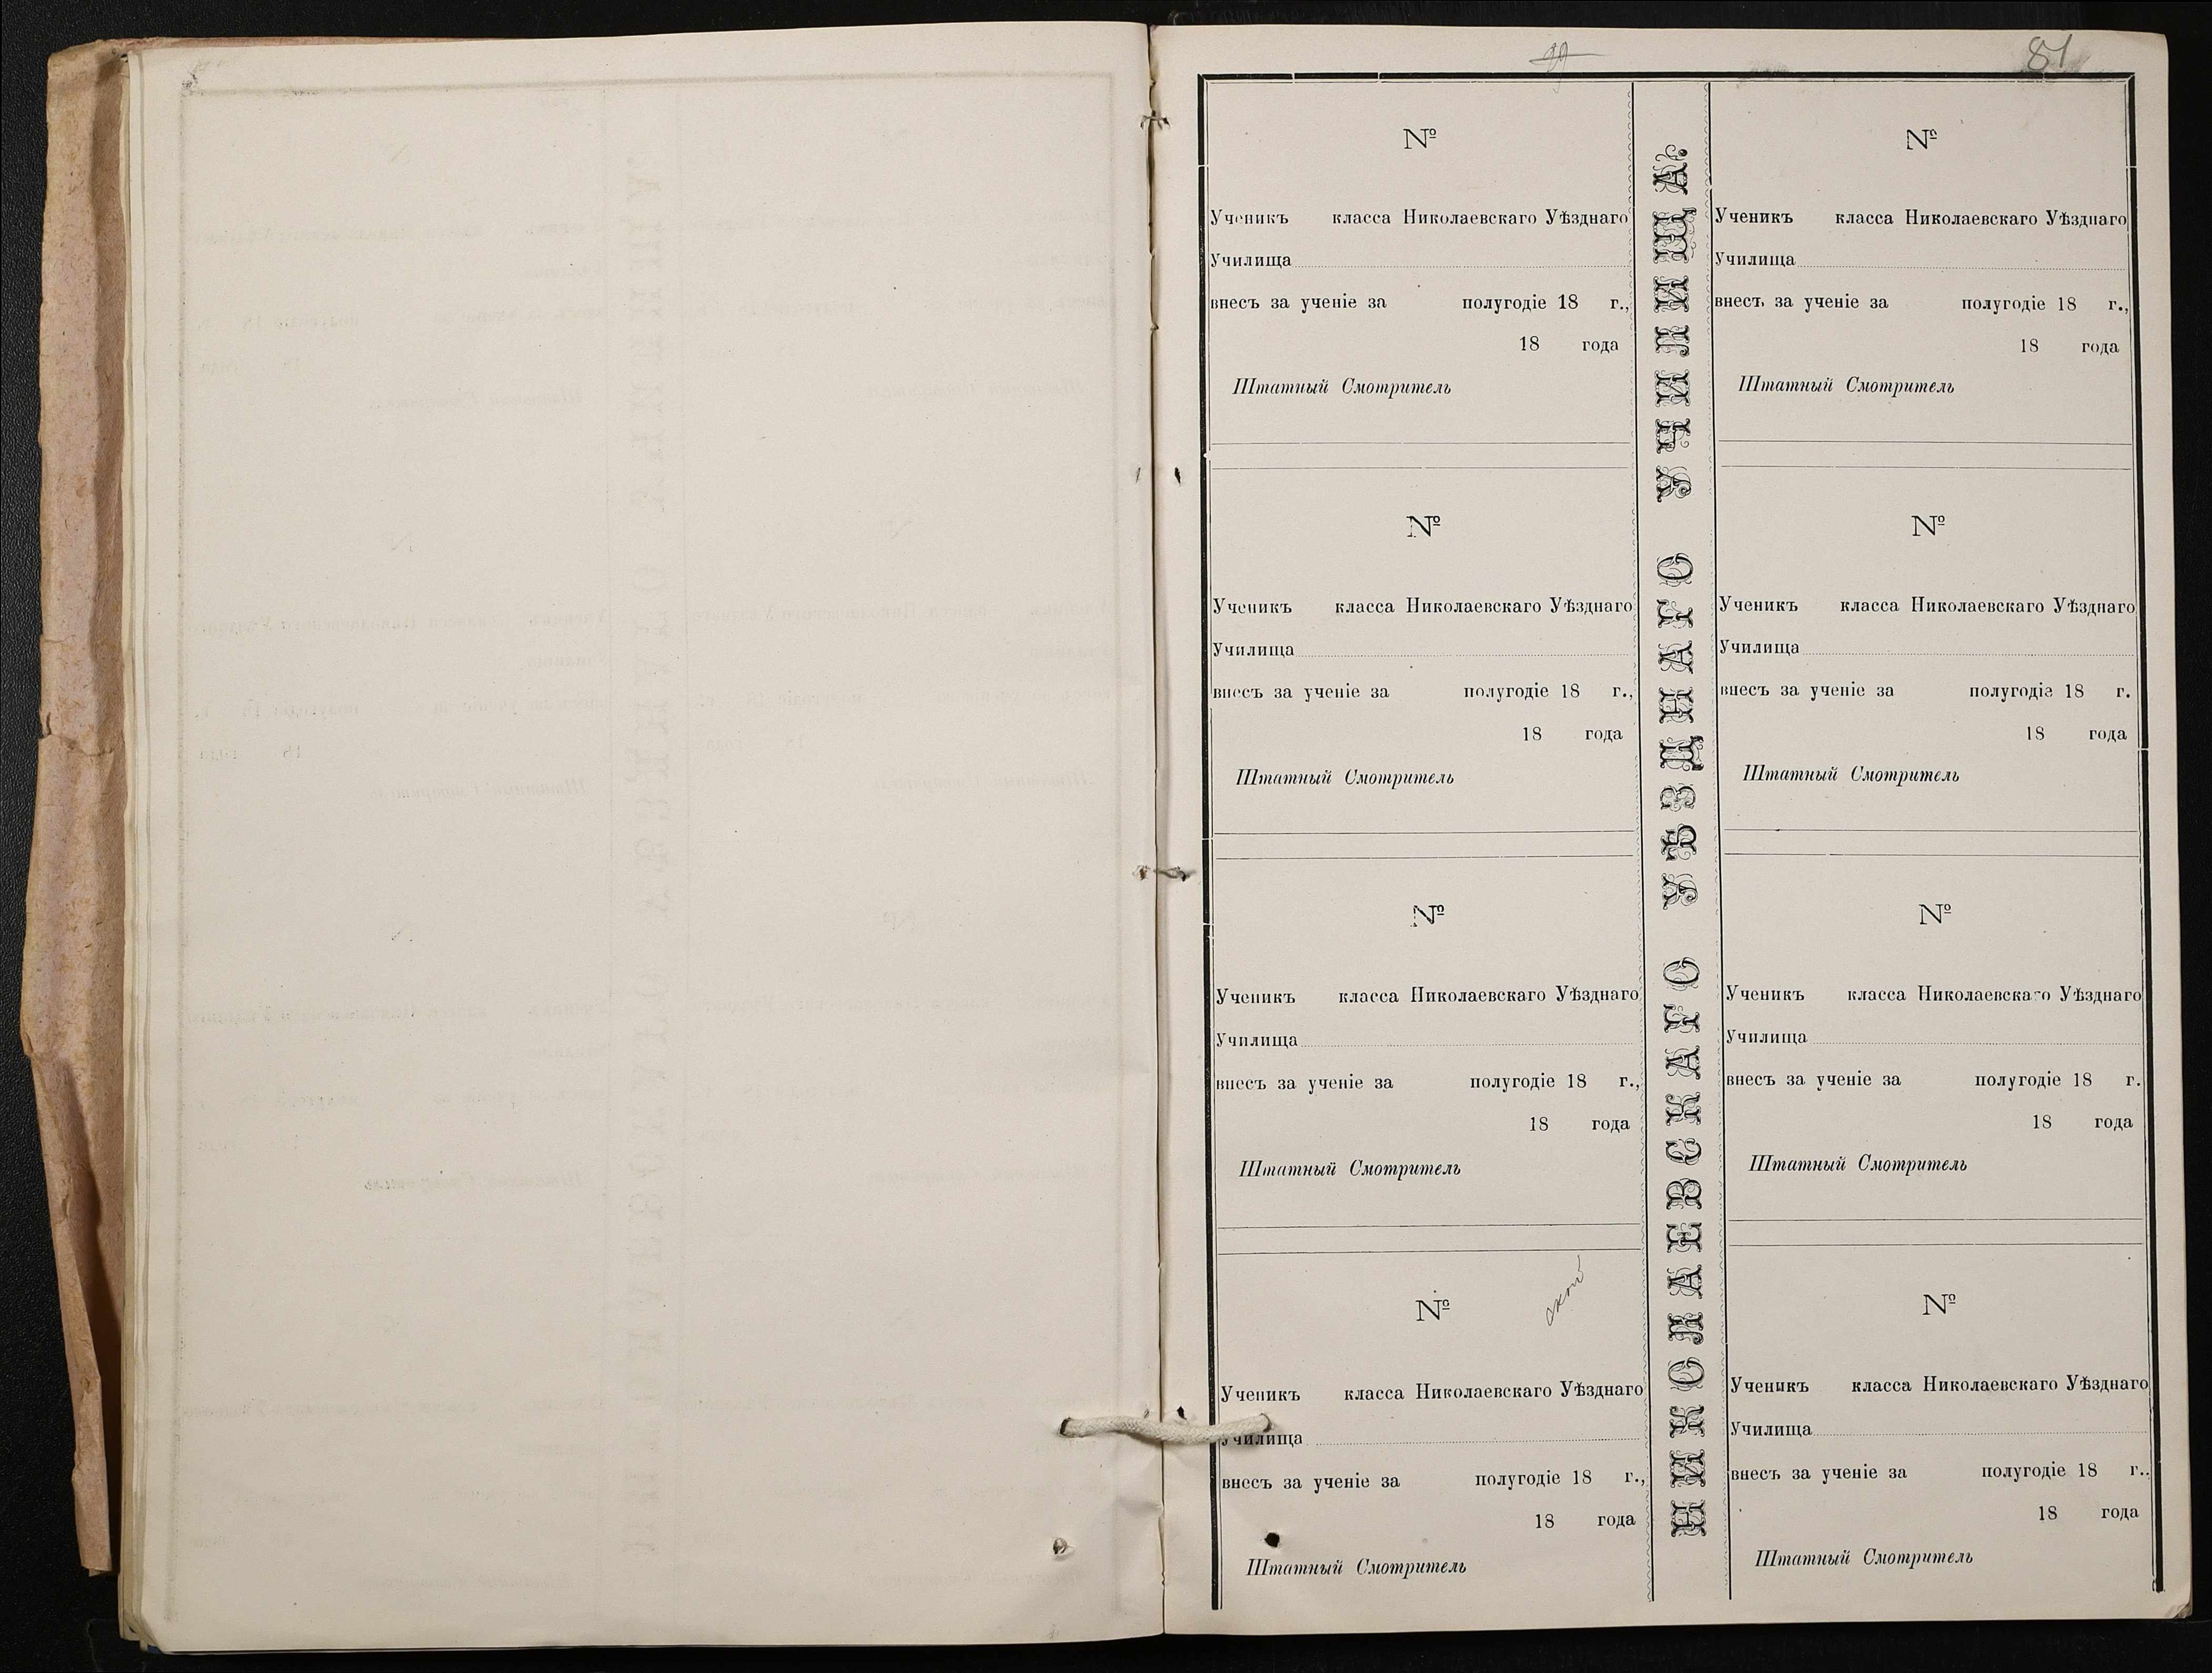 99
81
№
Ученикъ класса Николаевскаго Уѣзднаго
Училища
внесъ за ученіе за полугодіе 18 г.,
18 года
Штатный Смотритель
№
Ученикъ класса Николаевскаго Уѣзднаго
Училища
внесъ за ученіе за полугодіе 18 г.,
18 года
Штатный Смотритель
№
Ученикъ класса Николаевскаго Уѣзднаго
Училища
внесъ за ученіе за полугодіе 18 г.,
18 года
Штатный Смотритель
№
Ученикъ класса Николаевскаго Уѣзднаго
Училища
внесъ за ученіе за полугодіе 18 г.,
18 года
Штатный Смотритель
НИКОЛАЕВСКАГО УѢЗДНАГО УЧИЛИЩА.
№
Ученикъ класса Николаевскаго Уѣзднаго
Училища
внесъ за ученіе за полугодіе 18 г.,
18 года
Штатный Смотритель
№
Ученикъ класса Николаевскаго Уѣзднаго
Училища
внесъ за ученіе за полугодіе 18 г.
18 года
Штатный Смотритель
№
Ученикъ класса Николаевскаго Уѣзднаго
Училища
внесъ за ученіе за полугодіе 18 г.
18 года
Штатный Смотритель
№
Ученикъ класса Николаевскаго Уѣзднаго
Училища
внесъ за ученіе за полугодіе 18 г.,
18 года
Штатный Смотритель